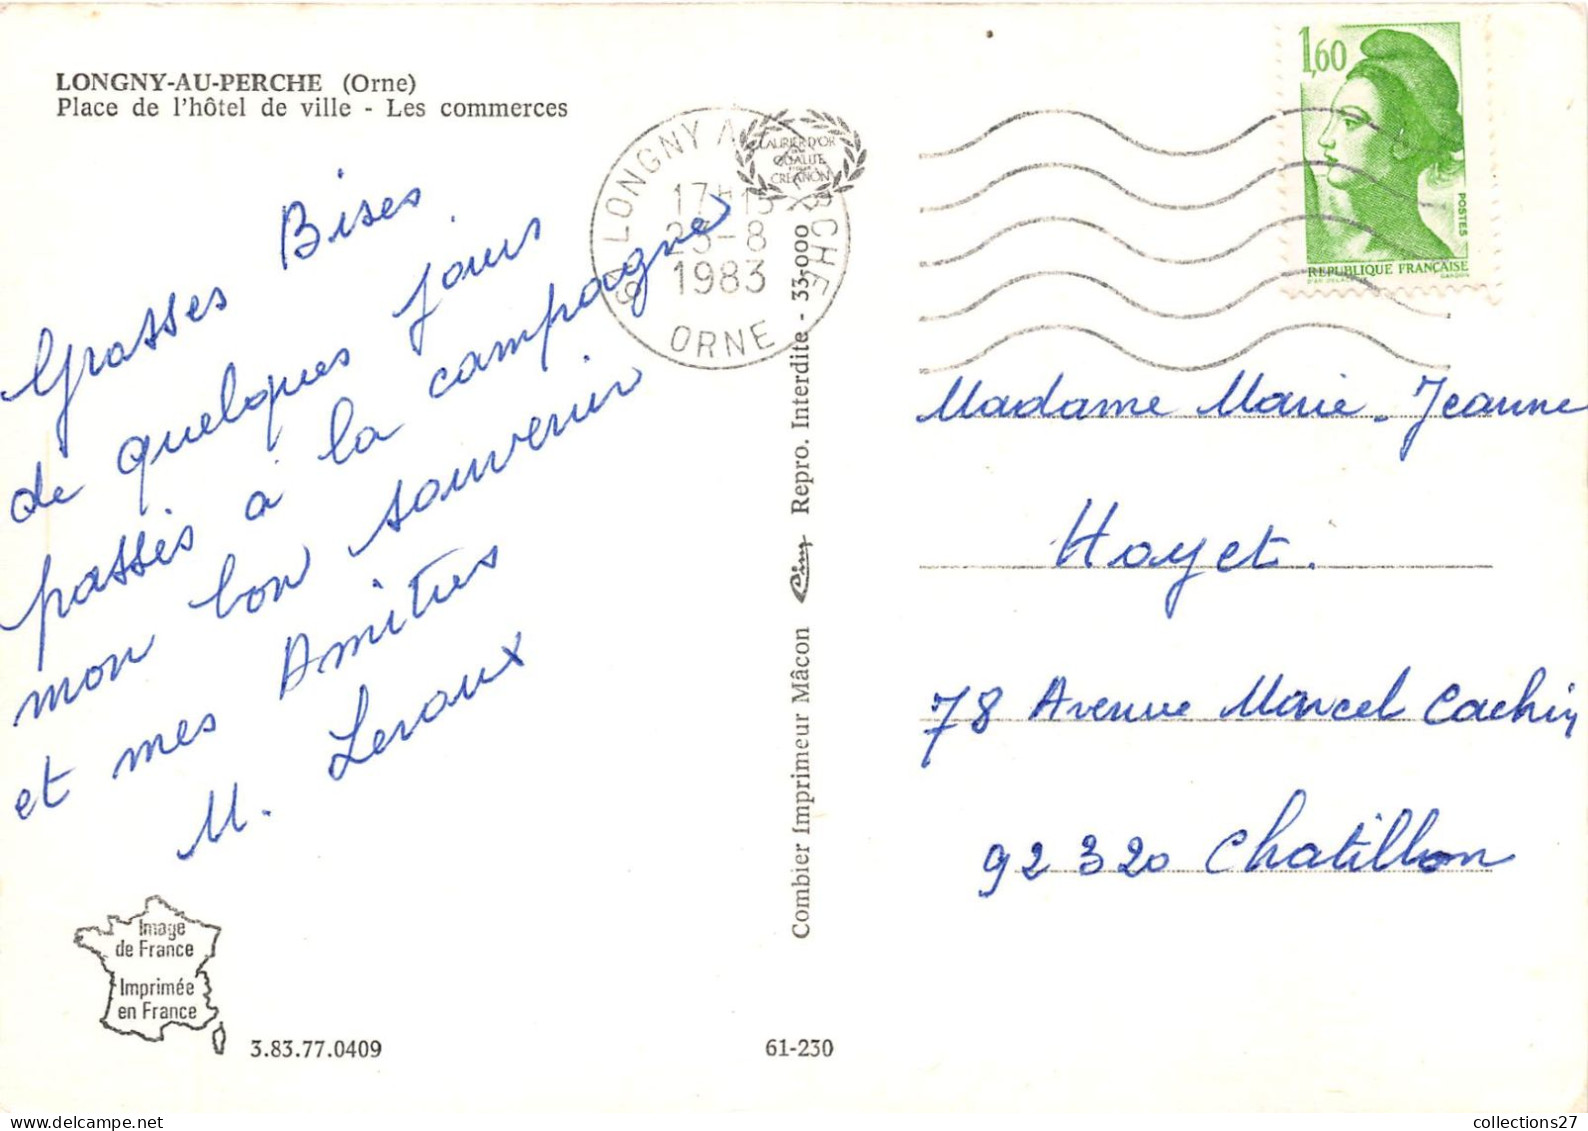 LONGNY-AU-PERCHE (Orne)
Place de l'hôtel de ville - Les commerces
Grosses Bises
de quelques jours
passés à la campagne
mon bon souvenir
et mes Amitiés
M. Leroux
Image
de France
Imprimée
en France
3.83.77.0409
61-230
Combier Imprimeur Mâcon Cim Repro. Interdite - 33.000
LAURIER D'OR
QUALITÉ
CRÉATION
61 LONGNY AU PERCHE
17H15
23-8
1983
ORNE
1,60
POSTES
REPUBLIQUE FRANÇAISE
Madame Marie-Jeanne
Hoyet.
78 Avenue Marcel Cachin
92320 Chatillon
collections27